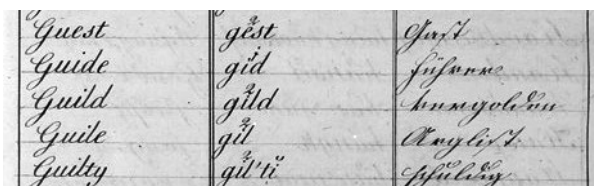 Guest gĕ̊st Gast
Guide gi̊d Führer
Guild gĭ̊ld vergolden
Guile gi̊l Arglist.
Guilty gĭ̊l'tĭ̊ schuldig